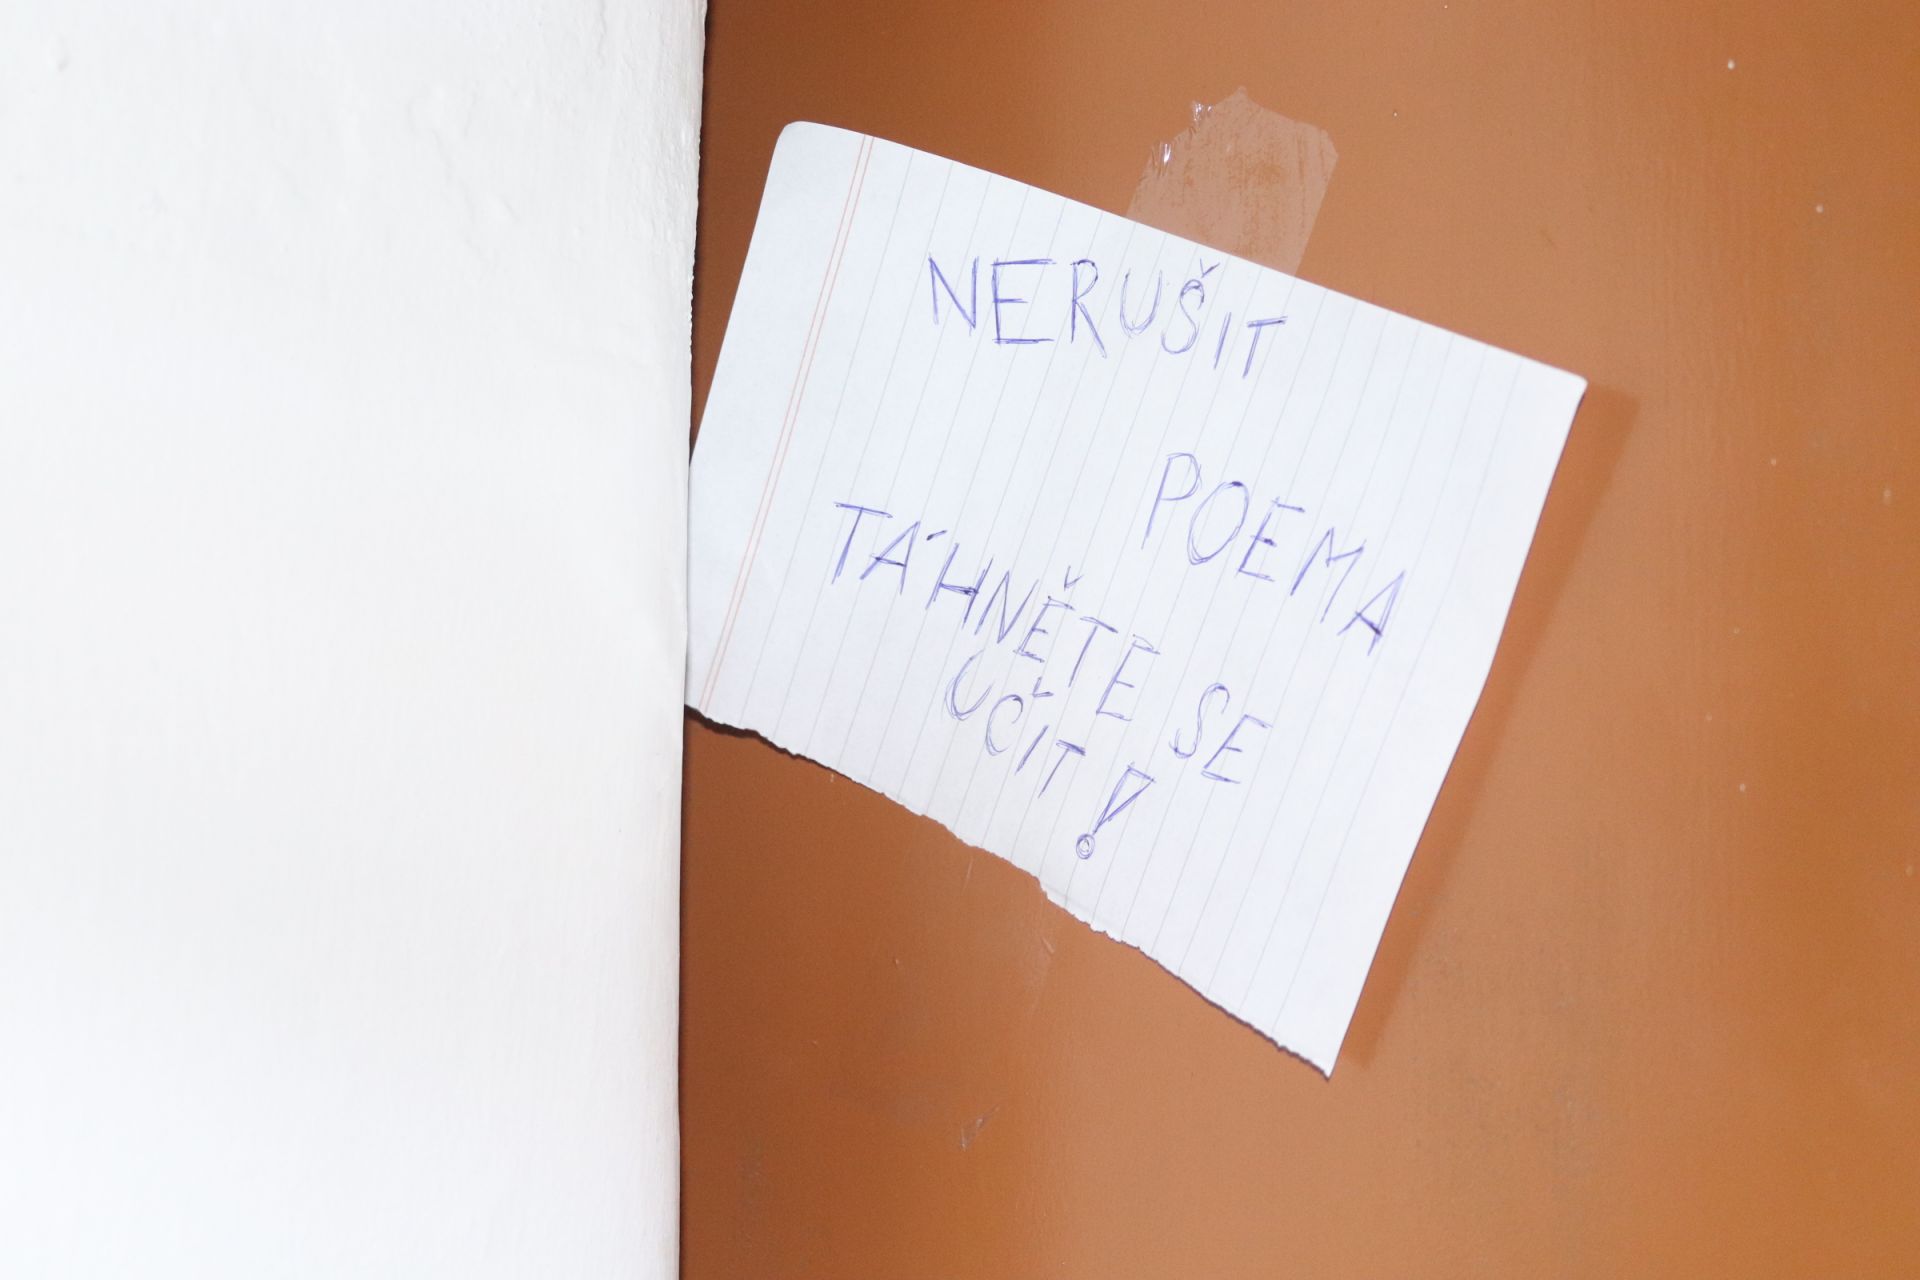 NERUŠIT
POEMA
TÁHNĚTE SE
UČIT!